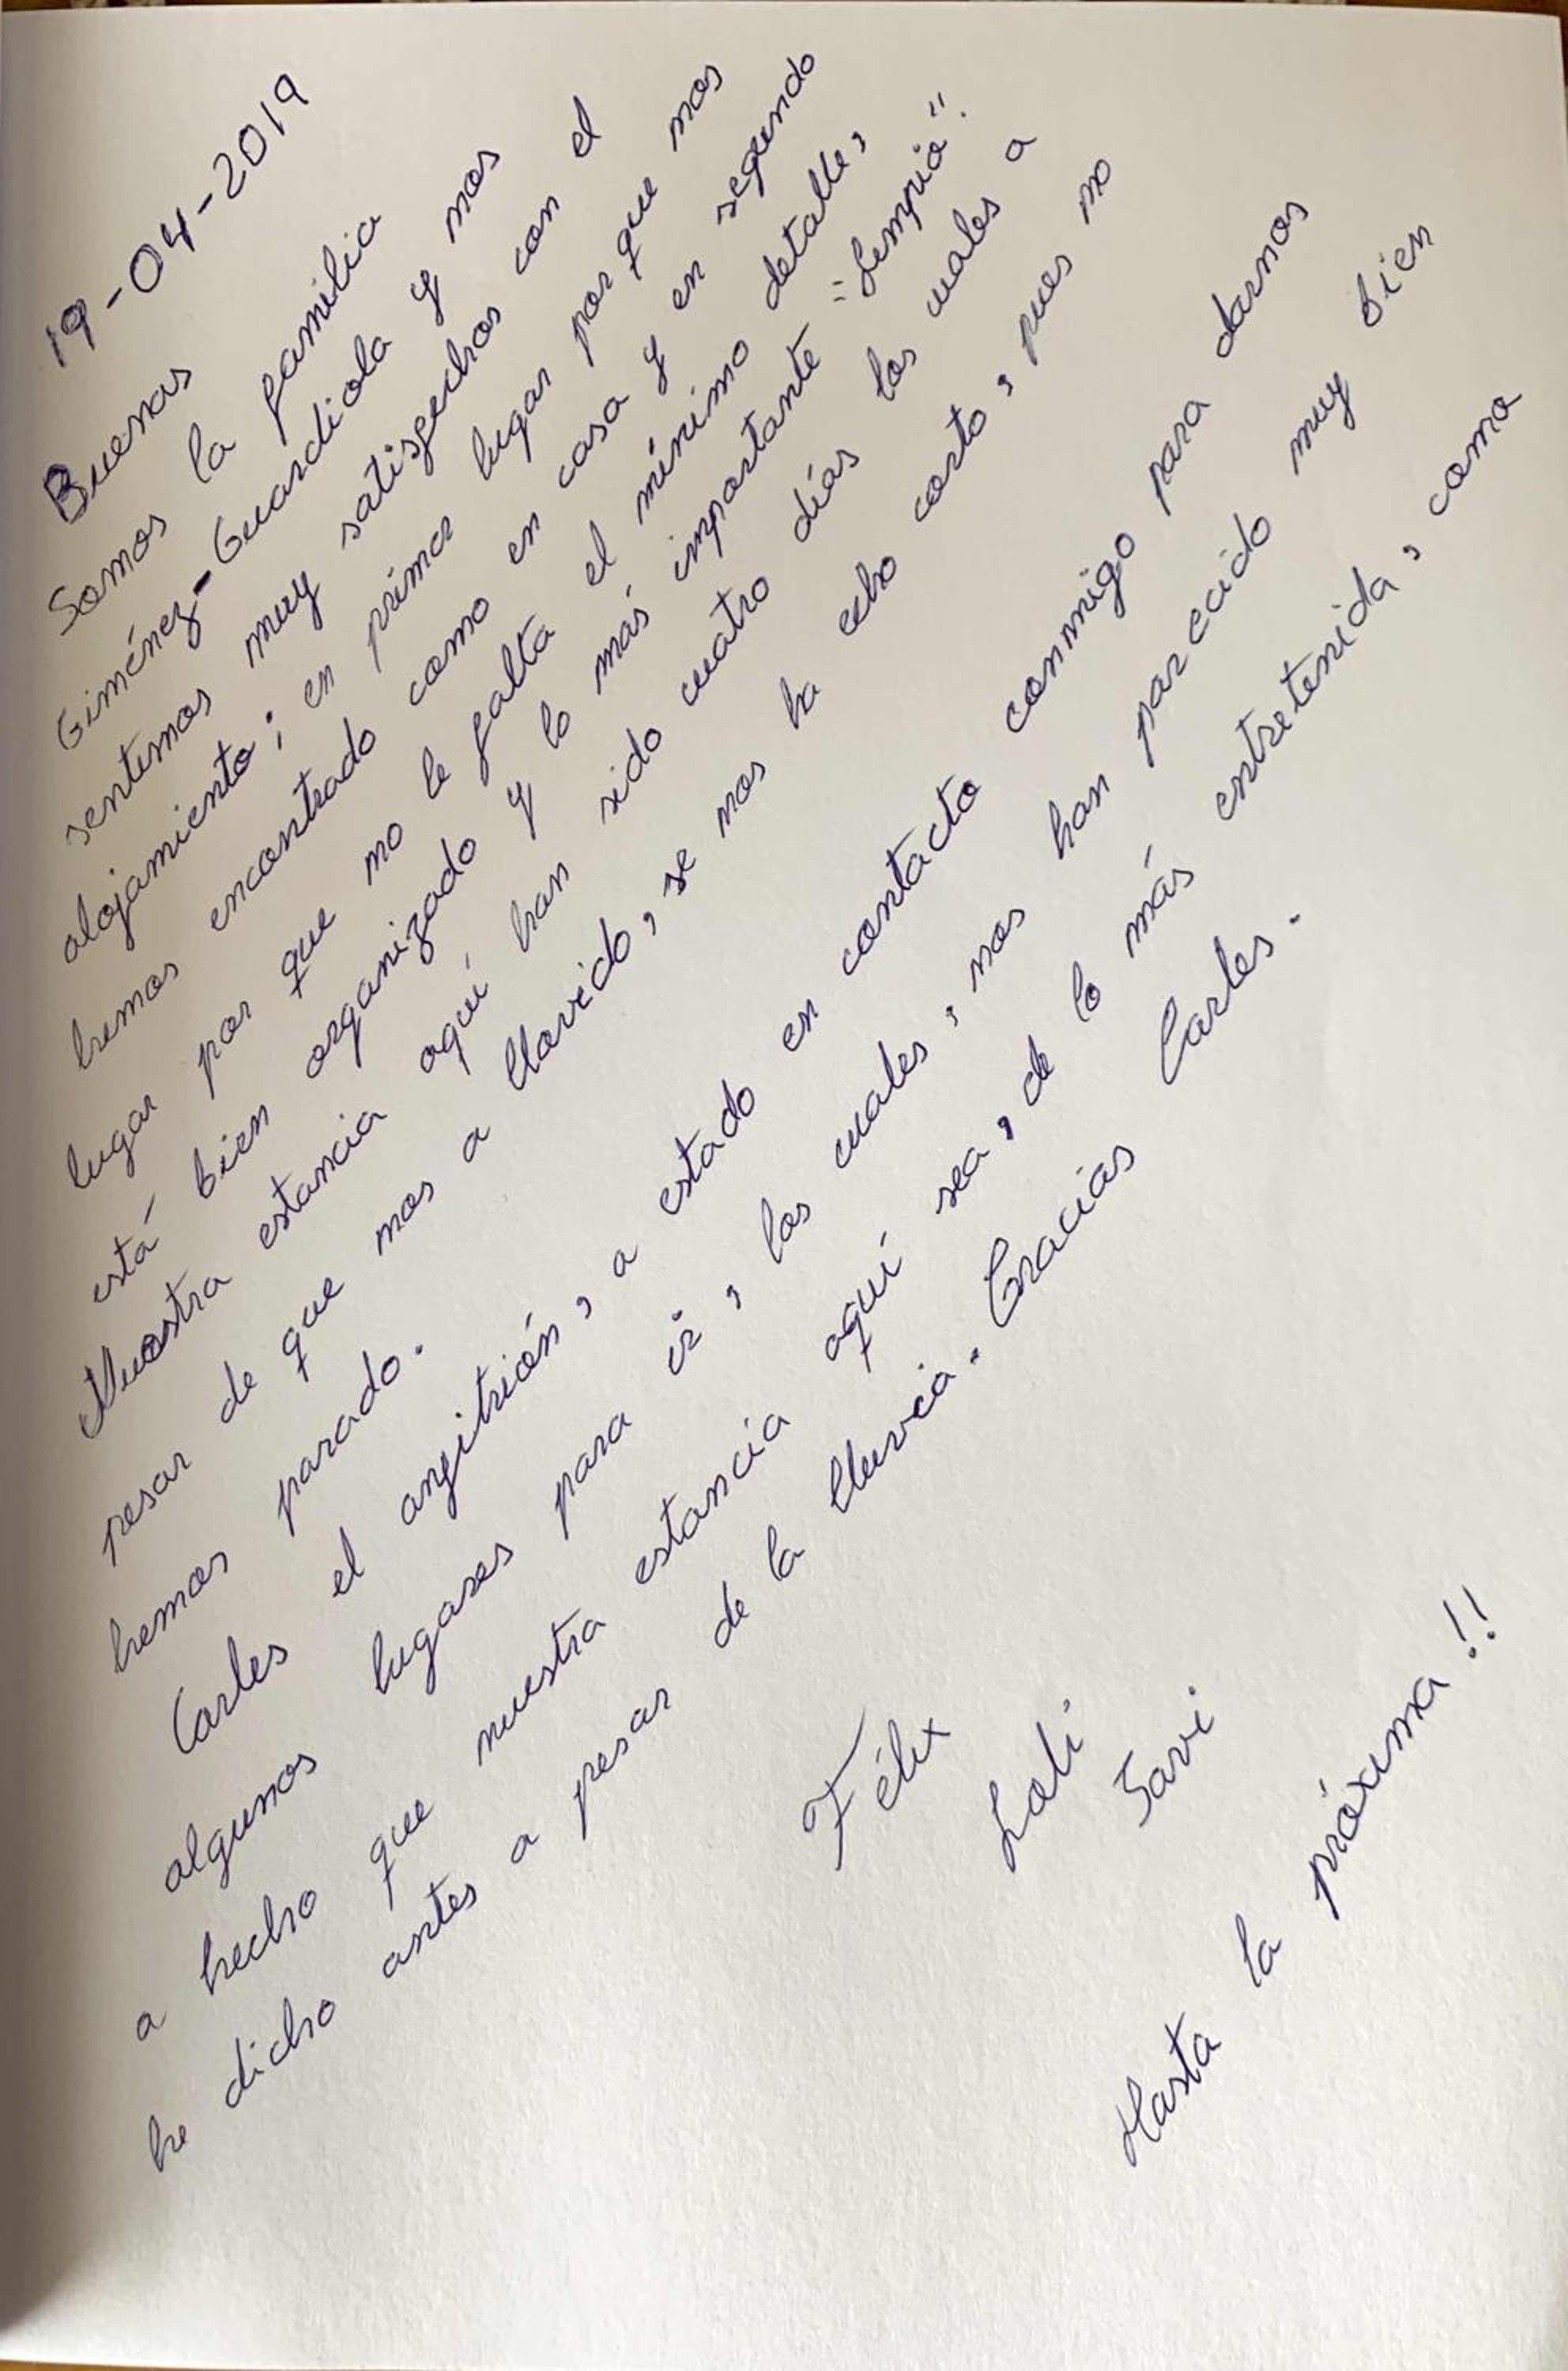 19-04-2019
Buenas
Somos la familia
Giménez-Guardiola y nos
sentimos muy satisfechos con el
alojamiento; en primer lugar por que nos
hemos encontrado como en casa y en segundo
lugar por que no le falta el mínimo detalle,
está bien organizado y lo más importante "Limpio".
Nuestra estancia aquí han sido cuatro días los cuales a
pesar de que nos a llovido, se nos ha echo corto, pues no
hemos parado.
Carles el anfitrión, a estado en contacto conmigo para darnos
algunos lugares para ir, los cuales, nos han parecido muy bien
a hecho que nuestra estancia aquí sea, de lo más entretenida, como
he dicho antes a pesar de la lluvia. Gracias Carles.
Félix
Loli
Javi
Hasta la próxima!!